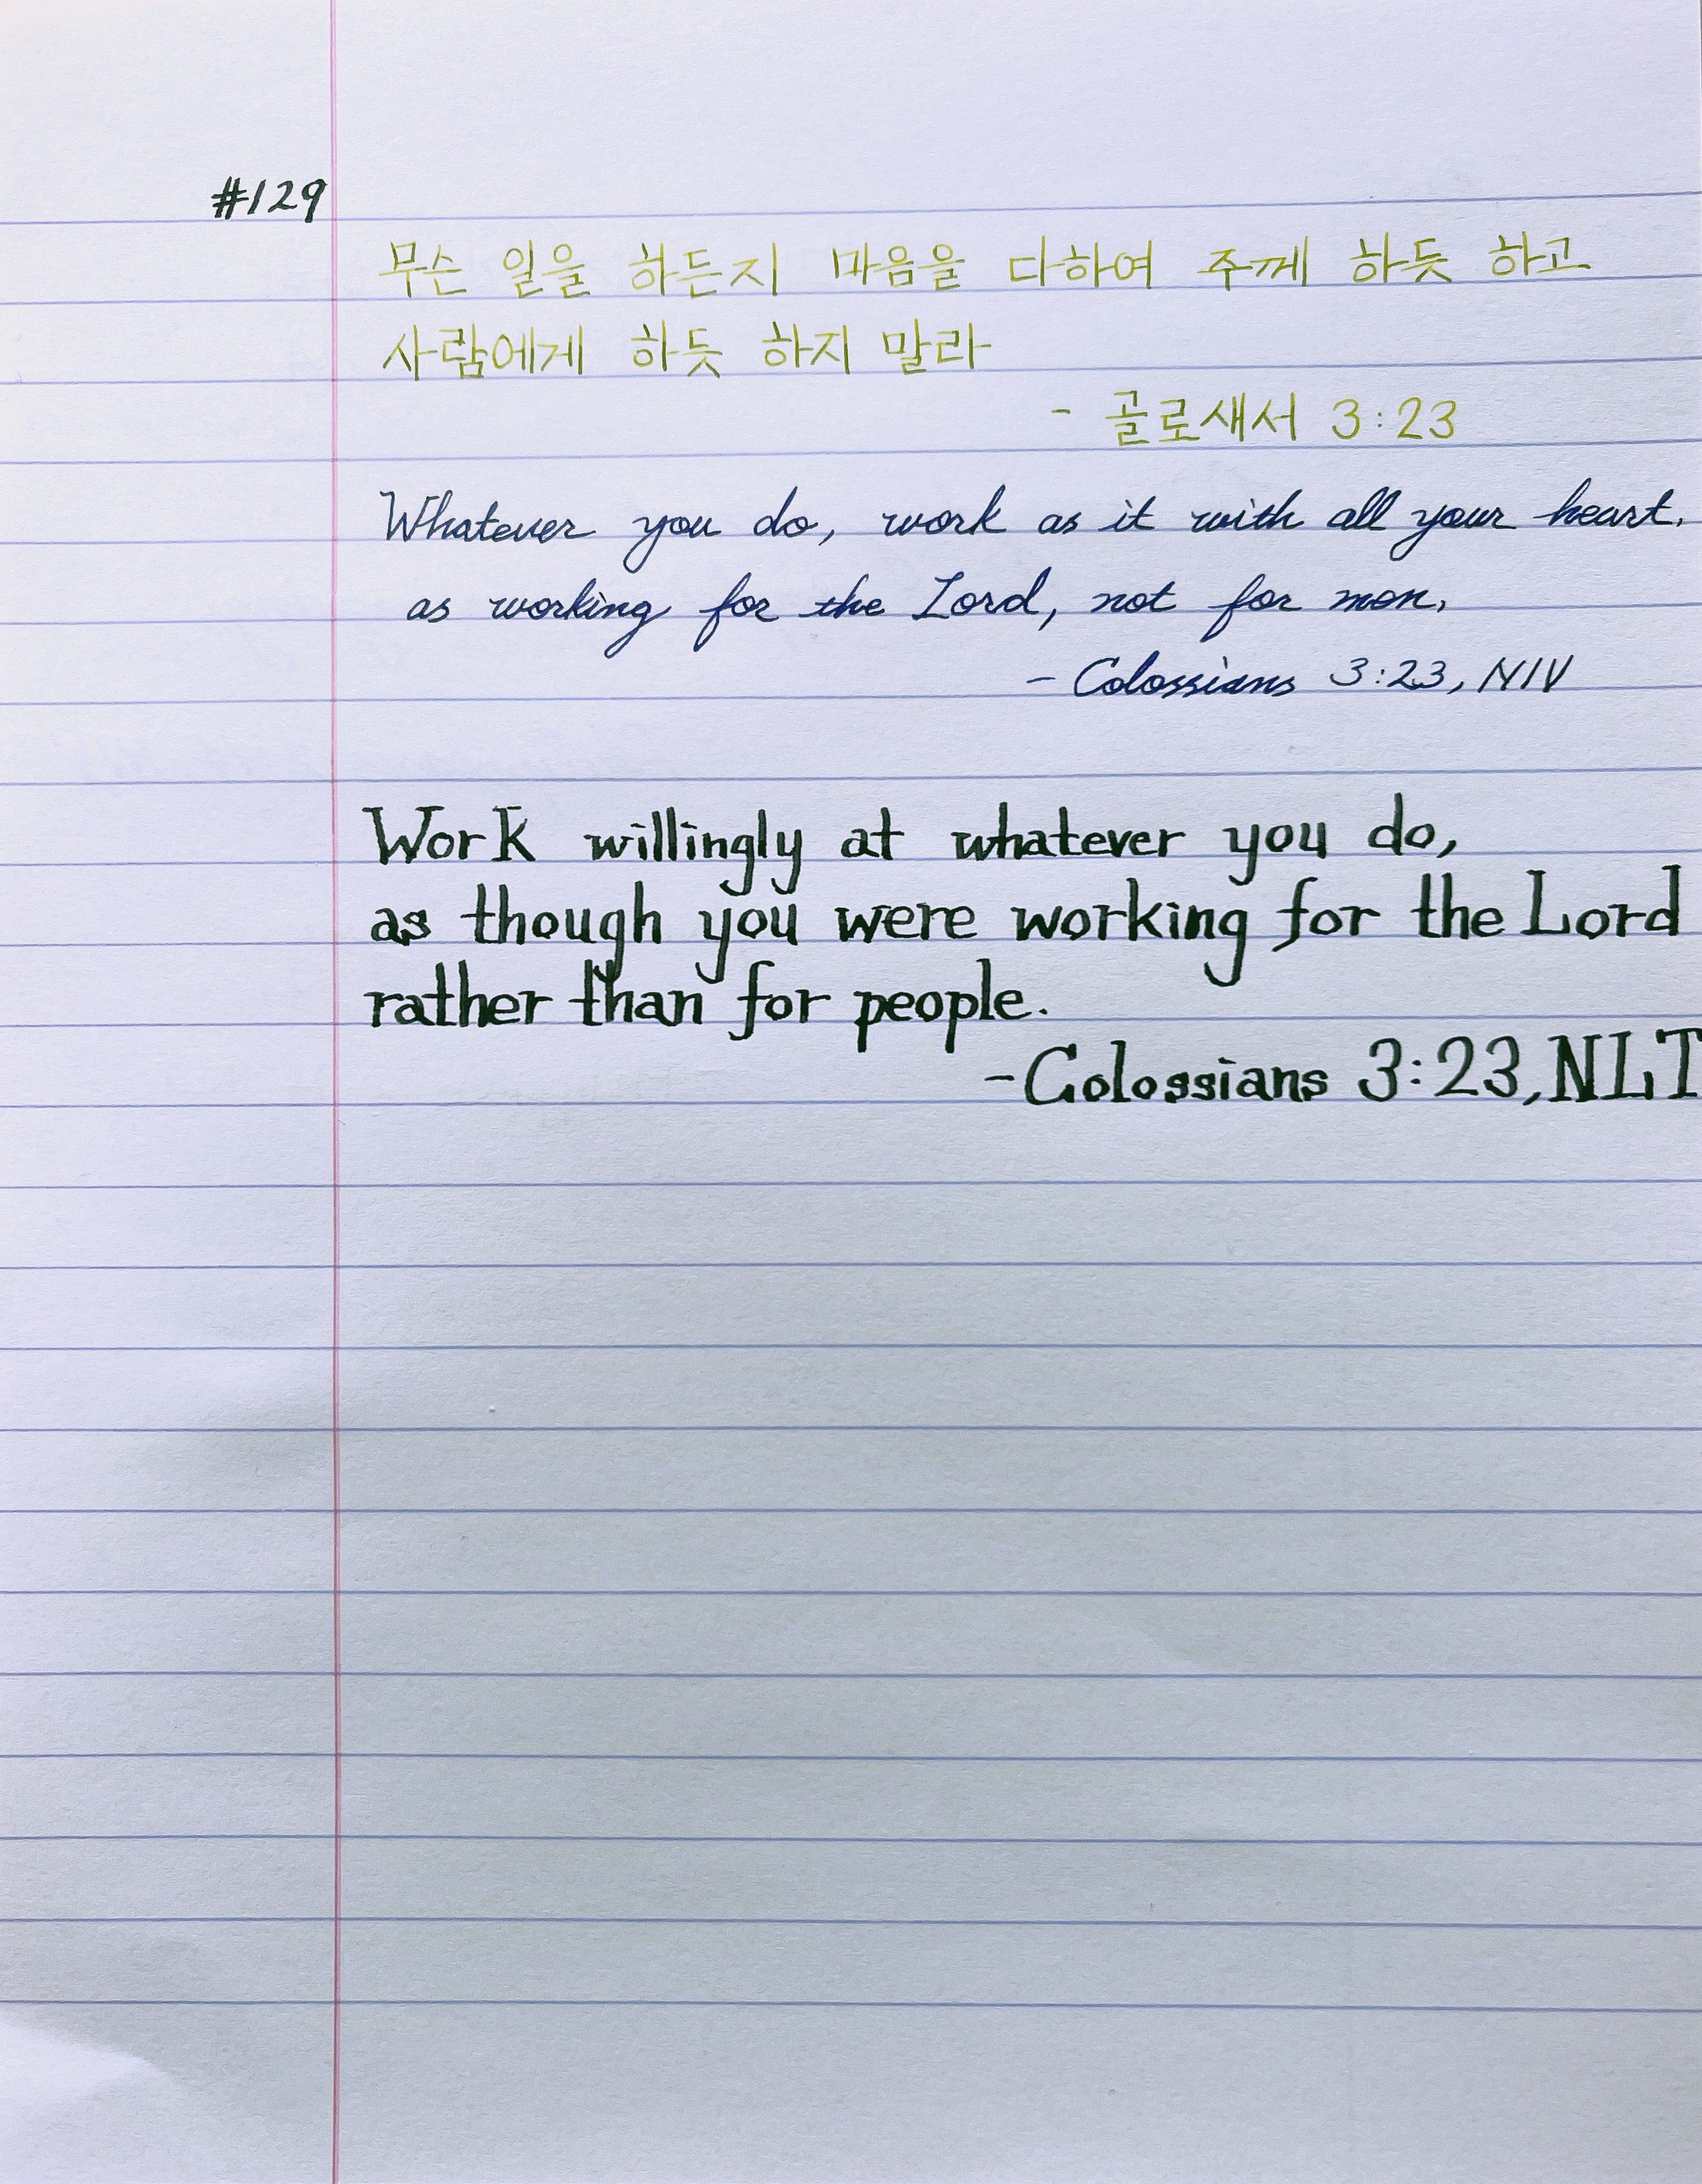 #129
무슨 일을 하든지 마음을 다하여 주께 하듯 하고
사람에게 하듯 하지 말라
- 골로새서 3:23
Whatever you do, work as it with all your heart,
as working for the Lord, not for men,
- Colossians 3:23, NIV
Work willingly at whatever you do,
as though you were working for the Lord
rather than for people.
-Colossians 3:23, NLT